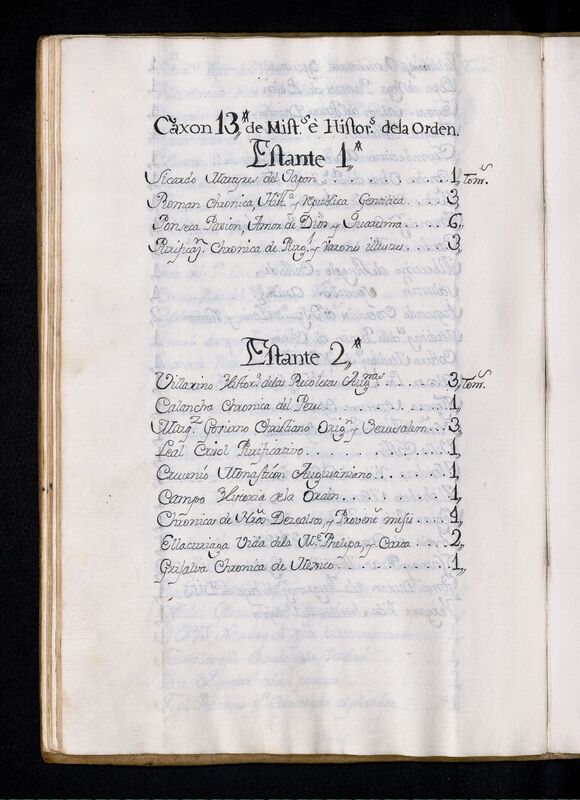 Caxon 13ª de Mist.s è Histor.s de la Orden.
Estante 1ª
Sicardo Martyres del Japon . . . . 1,, Tom.s
Roman Chronica, Hist.ª y republica Gentilica . . 3,,
Fonseca Pasion, Amor de Dios y Quaresma . . 6,,
Purificaç.n Chronica de y Varones illustres . . 3,,
Estante 2ª
Villarino Histor.ª de las Recoletas Aug.nas 3,, Tom.s
Calancha Chronica del Peru . . . . 1,,
Christiano Orig.n y Jerusalem . . 3,,
Leal Crisol Purificativo . . . . 1,,
Crucenio Monasticon Augustiniano . . . 1,,
Campo Historia de la Orden . . . 1,,
Chronicas de Nros Dezcalsos, y 4,,
Ellacuriaga Vida de la M.e Phelipa, y Carta . . . 2,,
Grisalva Chronica de Mexico . . . . 1,,